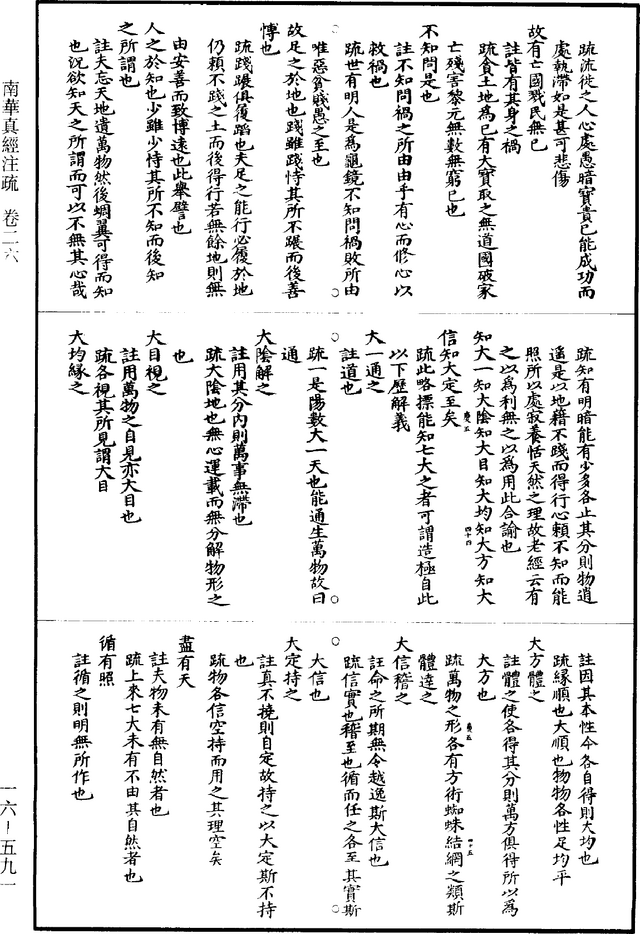 疏流徙之人心處愚暗寶貴已能成功而
處執滯如是甚可悲傷
故有亡國戮民無已
註皆有其身之禍
疏貪土地為已有大寶取之無道國破家
亡殘害黎元無數無窮已也
不知問是也
註不知問禍之所由由乎有心而修心以
救禍也
疏世有明人是為龜鏡不知問禍敗所由
唯惡貧賤愚之至也
故足之於地也踐雖踐恃其所不蹍而後善
博也
疏踐蹍俱履蹈也夫足之能行必履於地
仍賴不踐之土而後得行若無餘地則無
由安善而致博遠也此舉譬也
人之於知也少雖少恃其所不知而後知
之所謂也
註夫忘天地遺萬物然後蜩翼可得而知
也況欲知天之所謂而可以不無其心哉
疏知有明暗能有少多各止其分則物遺
遙是以地籍不踐而得行心賴不知而能
照所以處寂養恬天然之理故老經云有
之以為利無之以為用此合諭也
知大一知大陰知大目知大均知大方知大
信知大定至矣
疏此略摽能知七大之者可謂造極自此
以下歷解義
大一通之
註道也
疏一是陽數大一天也能通生萬物故曰
通
大陰解之
註用其分內則萬事無滯也
疏大陰地也無心運載而無分解物形之
也
大目視之
註用萬物之自見亦大目也
疏各視其所見謂大目
大均緣之
註因其本性令各自得則大均也
疏緣順也大順也物物各性足均平
大方體之
註體之使各得其分則萬方俱得所以為
大方也
疏萬物之形各有方術蜘蛛結網之類斯
體達之
大信稽之
註命之所期無令越逸斯大信也
疏信實也稽至也循而任之各至其實斯
大信也
大定持之
註真不撓則自定故持之以大定斯不持
也
疏物各信空持而用之其理空矣
盡有天
註夫物未有無自然者也
疏上來七大未有不由其自然者也
循有照
註循之則明無所作也
南華真經注疏 卷二六
一六－五九一